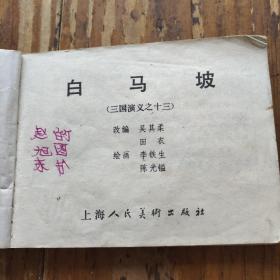 白马坡
（三国演义之十三）
改编 吴其柔
田衣
绘画 李铁生
陈光镒
上海人民美術出版社